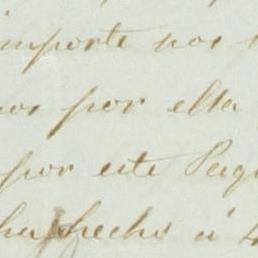 importe nos
nos por ella
por este Paq
ha hecho á